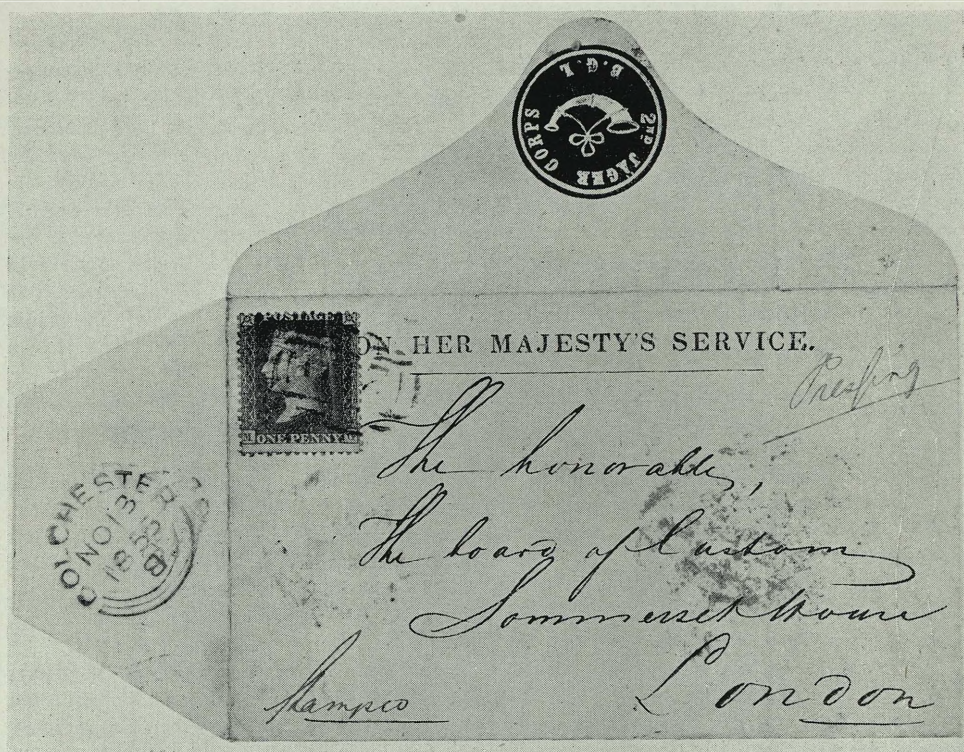 2ND JÄGER CORPS B.G.L
POSTAGE
ONE PENNY
ON HER MAJESTY'S SERVICE.
Pressing
The honorable,
The board of Custom
Sommerset House
London
Stamped
COLCHESTER
NO 13
1855
B